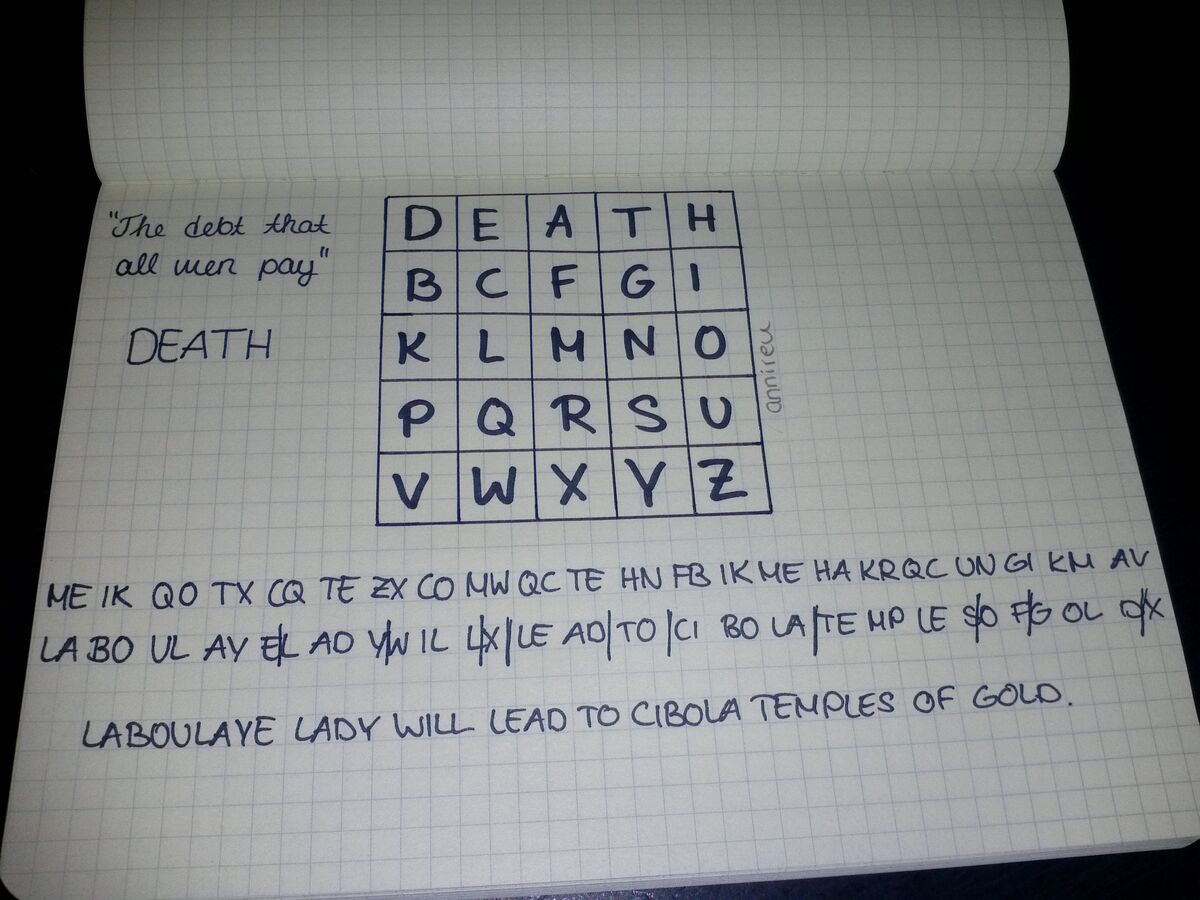 "The debt that
all men pay"
DEATH
D E A T H
B C F G I
K L M N O
P Q R S U
V W X Y Z
annireu
ME IK QO TX CQ TE ZX CO MW QC TE HN FB IK ME HA KR QC UN GI KM AV
LA BO UL AY E/L AD Y/W IL L/X/LE AD/TO/CI BO LA/TE MP LE S/O F/G OL D/X
LABOULAYE LADY WILL LEAD TO CIBOLA TEMPLES OF GOLD.